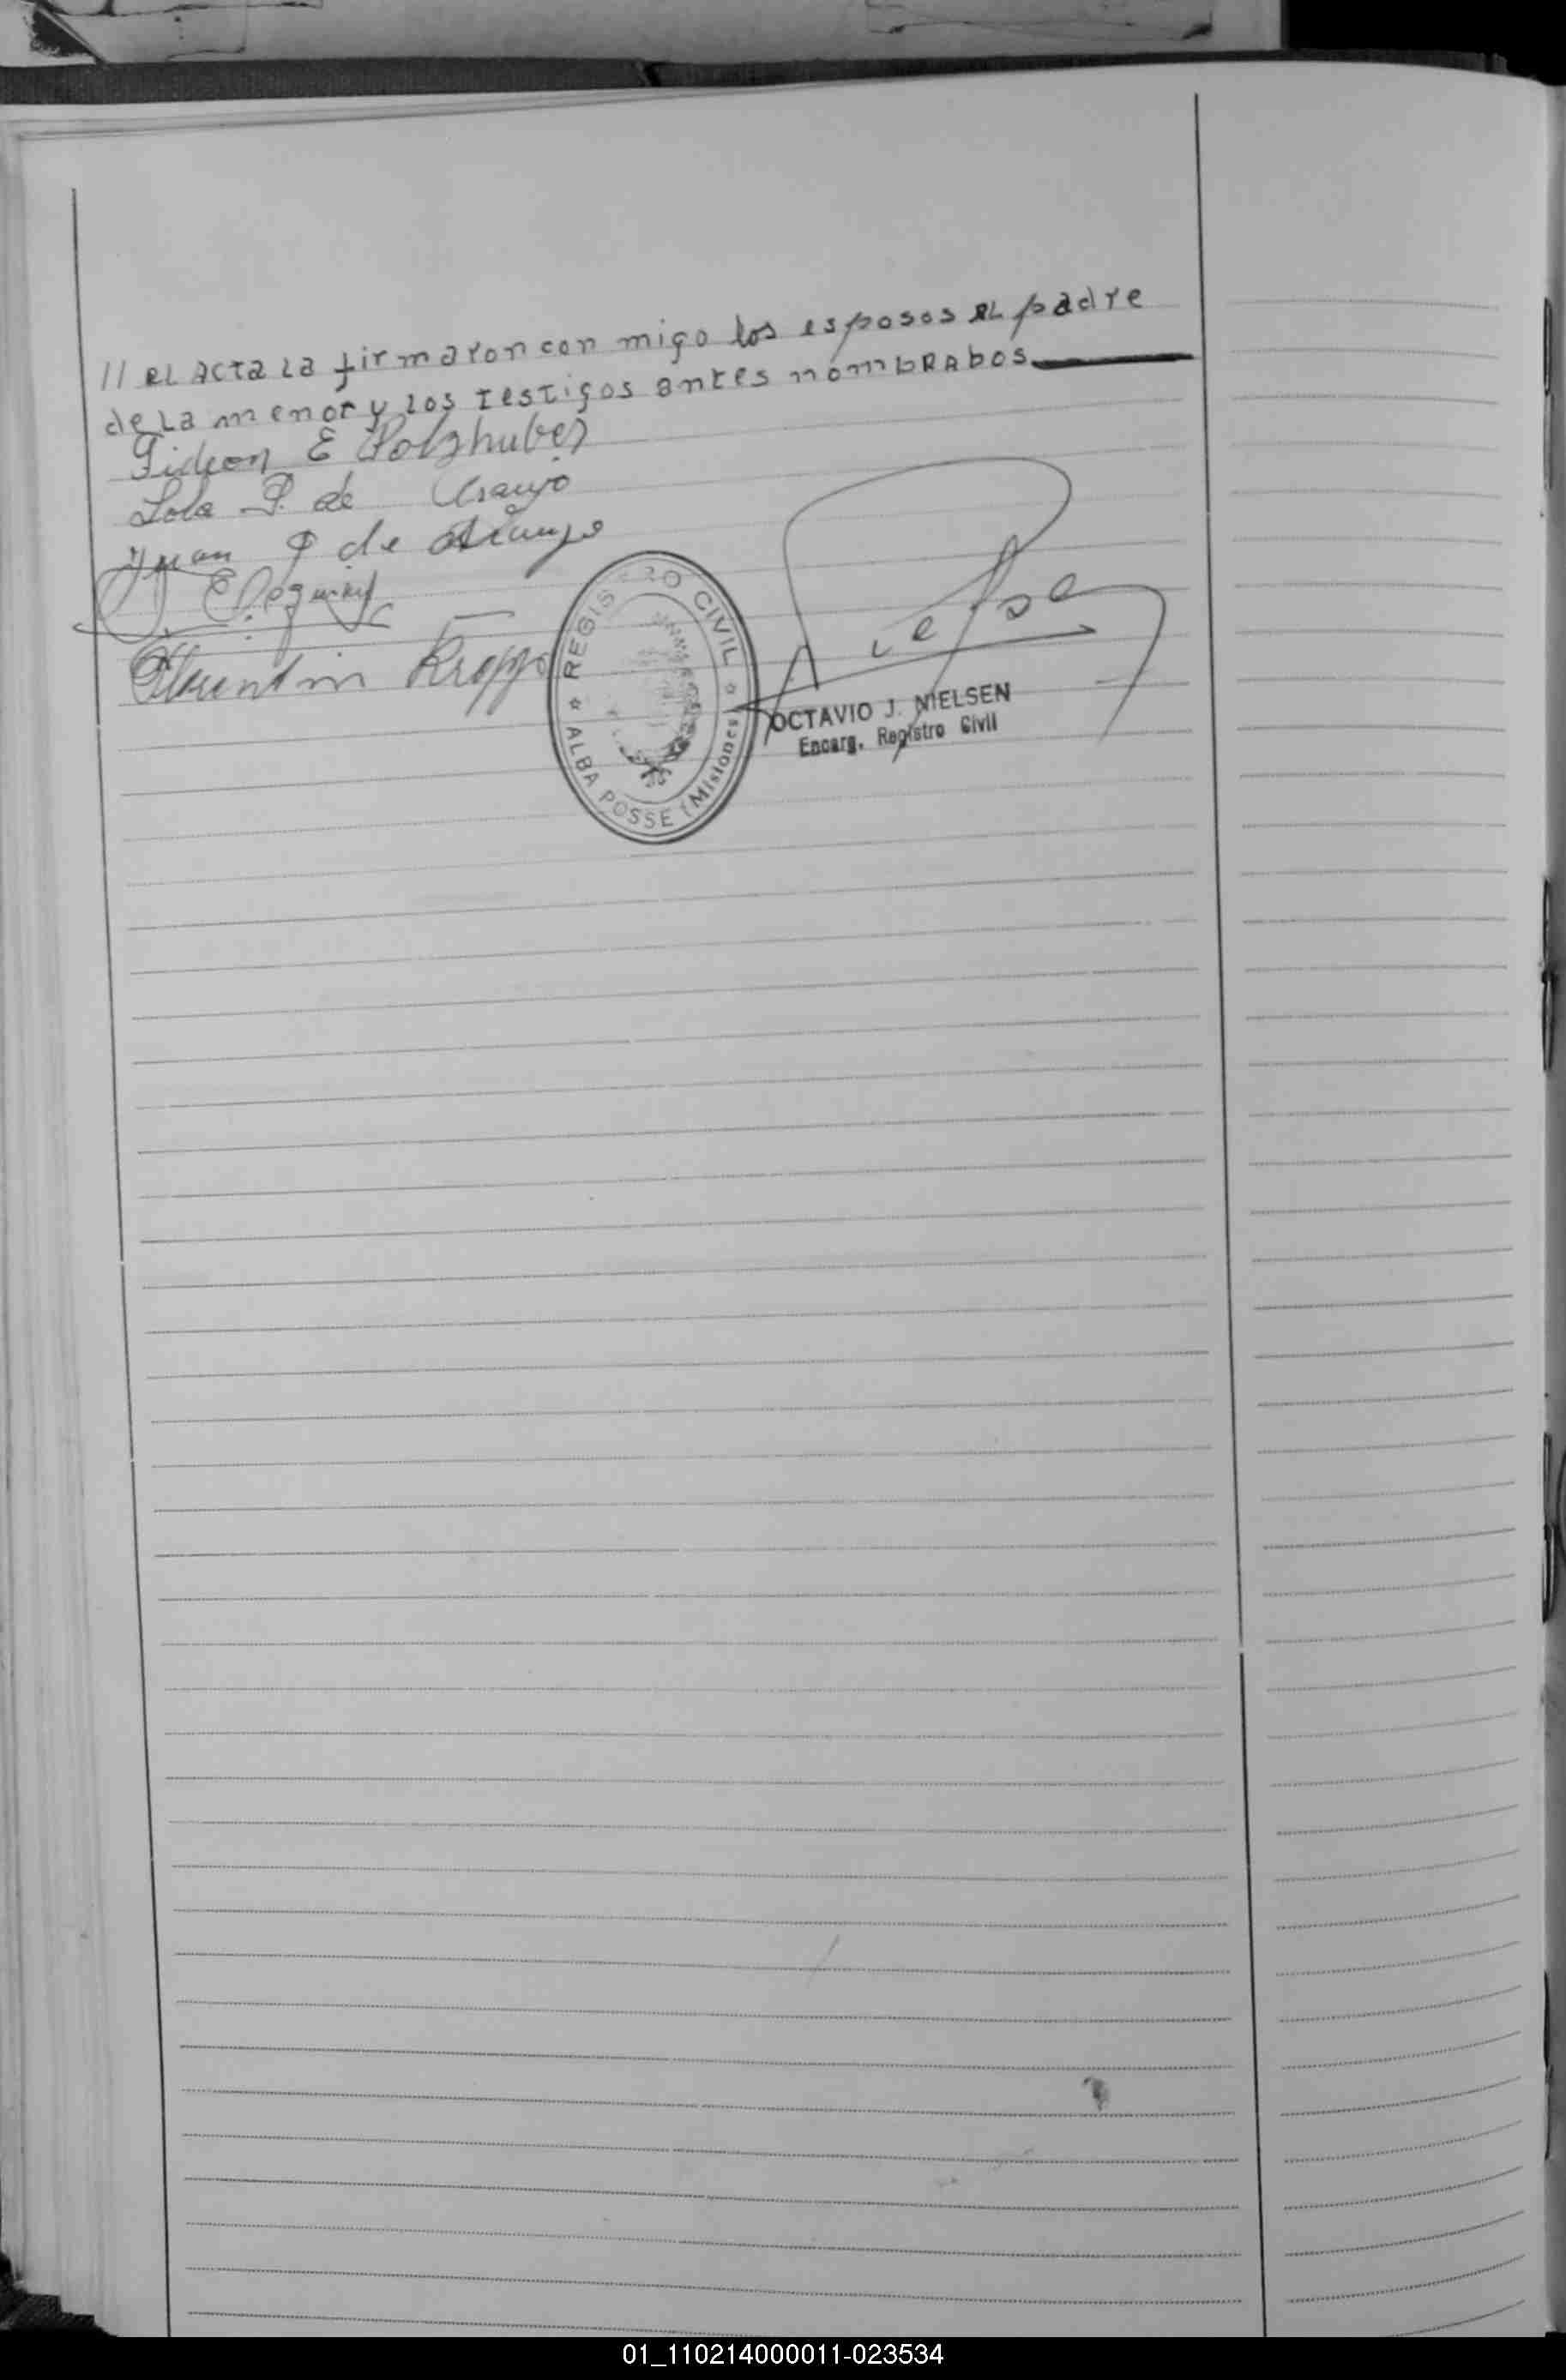 // EL ACTA LA firmaron con migo los esposos EL padre
de La menor y Los Testigos antes nombrados
Gideon E Polzhuber
Lola P. de Araujo
Juan P de Araujo
Florentin Kropp
REGISTRO CIVIL
ALBA POSSE (Misiones)
OCTAVIO J. NIELSEN
Encarg. Registro Civil
01_110214000011-023534